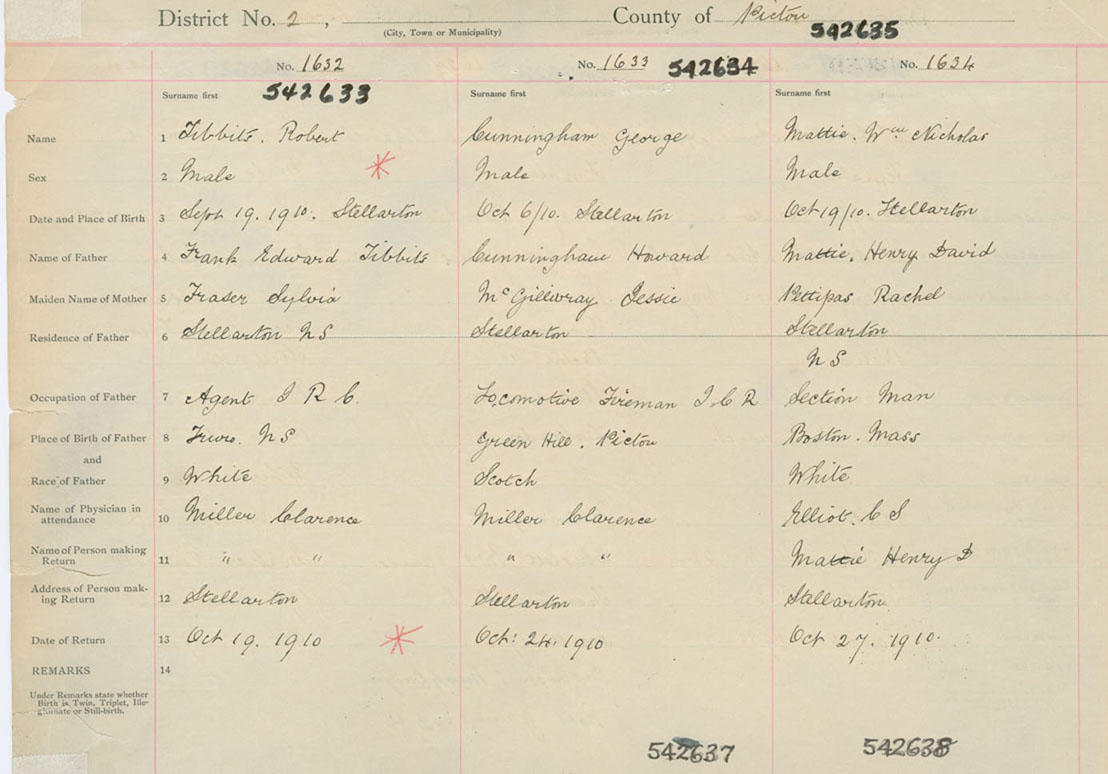 District No. 2, County of Pictou
(City, Town or Municipality)
542635
No. 1632 No. 1633 542634 No. 1634
Surname first 542633 Surname first Surname first
Name 1 Tibbits. Robert Cunningham George Mattie. Wm Nicholas
Sex 2 Male Male Male
Date and Place of Birth 3 Sept 19. 1910. Stellarton Oct 6/10. Stellarton Oct 19/10. Stellarton
Name of Father 4 Frank Edward Tibbits Cunningham Howard Mattie. Henry David
Maiden Name of Mother 5 Fraser Sylvia McGillivray Jessie Pettipas Rachel
Residence of Father 6 Stellarton N S Stellarton Stellarton
N S
Occupation of Father 7 Agent I R C. Locomotive Fireman I C R Section Man
Place of Birth of Father 8 Truro. N S Green Hill. Pictou Boston. Mass
and
Race of Father 9 White Scotch White
Name of Physician in
attendance 10 Miller Clarence Miller Clarence Elliot. C S
Name of Person making
Return 11 " " " " Mattie Henry D
Address of Person mak-
ing Return 12 Stellarton Stellarton Stellarton
Date of Return 13 Oct 19. 1910 Oct: 24. 1910 Oct 27. 1910.
REMARKS 14
Under Remarks state whether
Birth is Twin, Triplet, Ille-
gitimate or Still-birth.
542637 542638